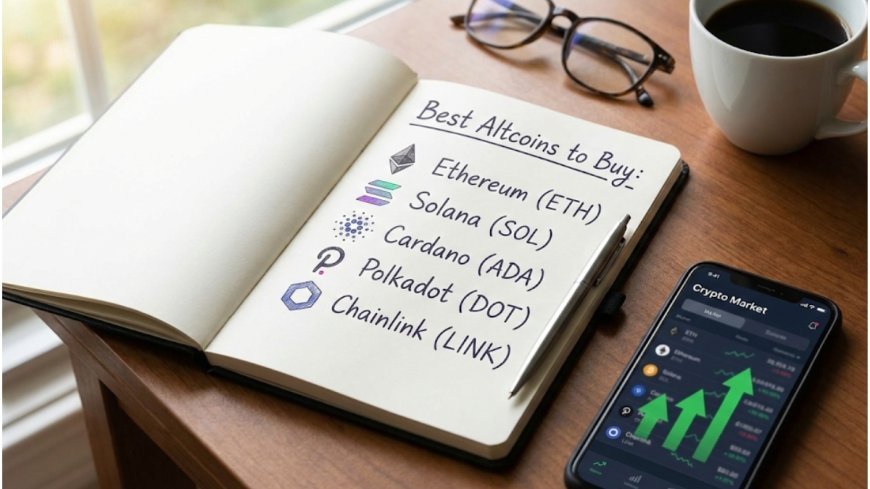 Best Altcoins to Buy:
Ethereum (ETH)
Solana (SOL)
Cardano (ADA)
Polkadot (DOT)
Chainlink (LINK)
9:41
Crypto Market
ETH
Ethereum
Solana
Chainlink